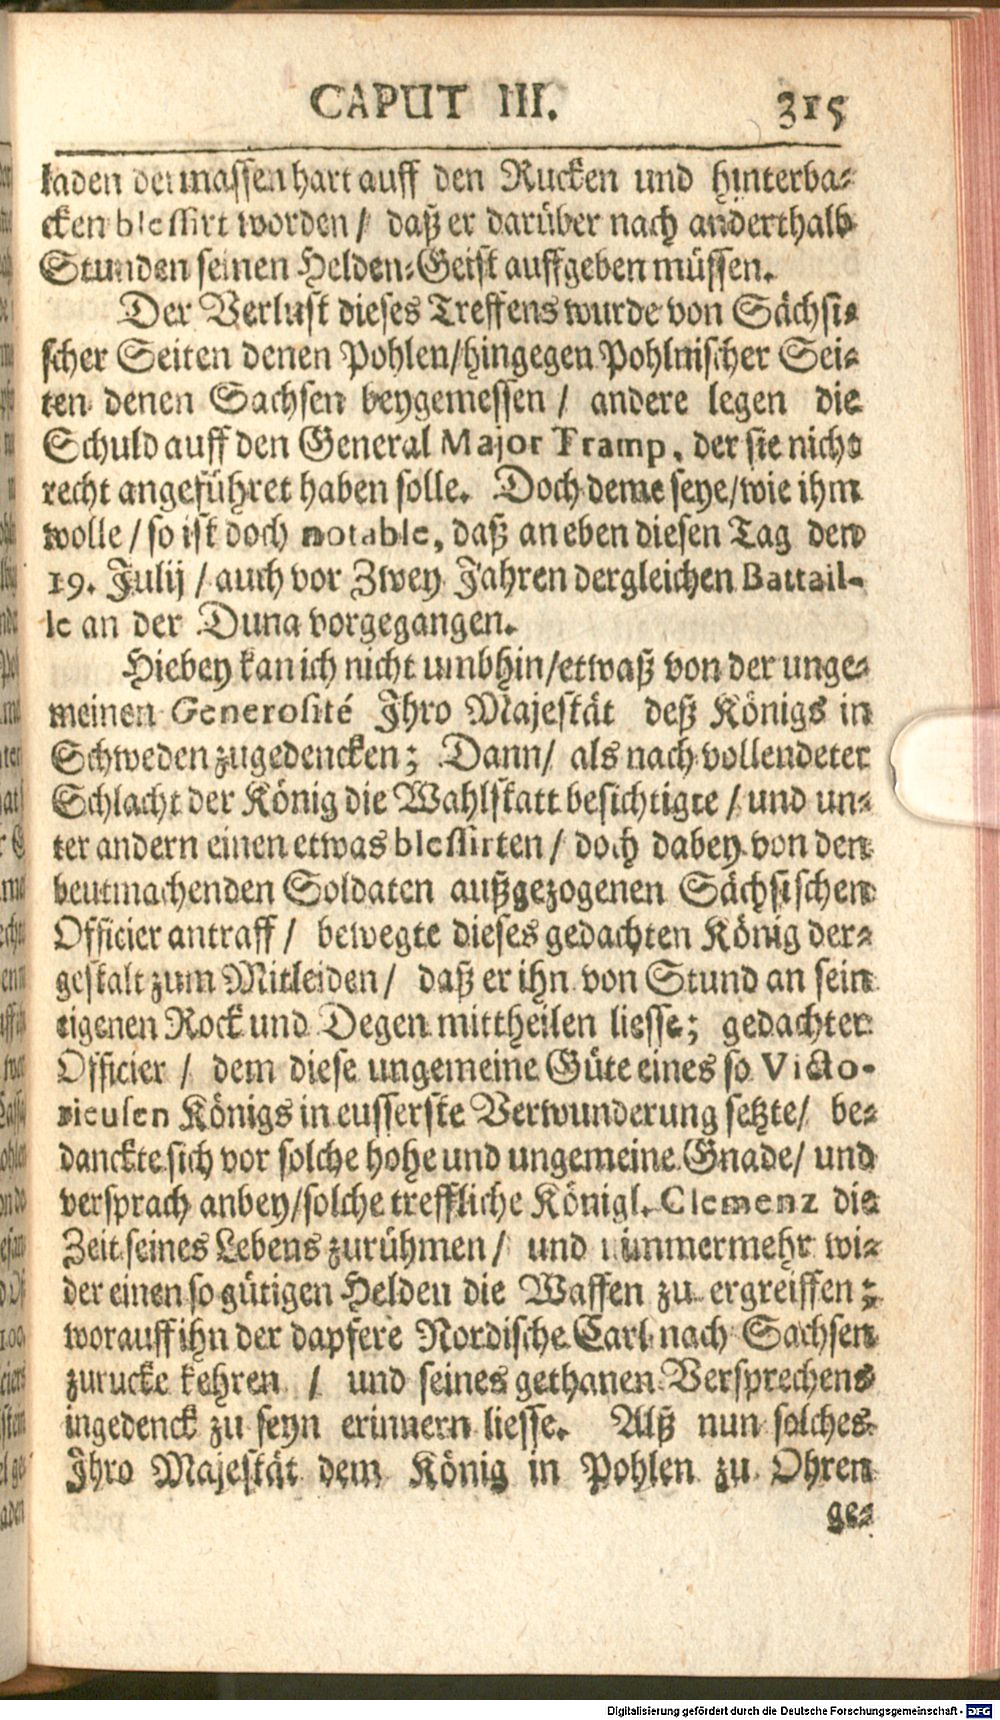 CAPUT III. 315
kaden dermassen hart auff den Rucken und hinterba-
cken blessirt worden / daß er darüber nach anderthalb
Stunden seinen Helden-Geist auffgeben müssen.
Der Verlust dieses Treffens wurde von Sächsi-
scher Seiten denen Pohlen/hingegen Pohlnischer Sei-
ten denen Sachsen beygemessen / andere legen die
Schuld auff den General Major Tramp, der sie nicht
recht angeführet haben solle. Doch deme seye/wie ihm
wolle / so ist doch notable, daß an eben diesen Tag den
19. Julij / auch vor Zwey Jahren dergleichen Battail-
le an der Duna vorgegangen.
Hiebey kan ich nicht umbhin/etwaß von der unge-
meinen Generosité Ihro Majestät deß Königs in
Schweden zugedencken; Dann/ als nach vollendeter
Schlacht der König die Wahlstatt besichtigte / und un-
ter andern einen etwas blessirten / doch dabey von den
beutmachenden Soldaten außgezogenen Sächsischen
Officier antraff / bewegte dieses gedachten König der-
gestalt zum Mitleiden / daß er ihn von Stund an sein
eigenen Rock und Degen mittheilen liesse; gedachter
Officier / dem diese ungemeine Güte eines so Victo-
rieusen Königs in eusserste Verwunderung setzte/ be-
danckte sich vor solche hohe und ungemeine Gnade/ und
versprach anbey/solche treffliche Königl. Clemenz die
Zeit seines Lebens zurühmen / und nimmermehr wi-
der einen so gütigen Helden die Waffen zu ergreiffen;
worauff ihn der dapfere Nordische Carl nach Sachsen
zurucke kehren / und seines gethanen Versprechens
ingedenck zu seyn erinnern liesse. Alß nun solches
Ihro Majestät dem König in Pohlen zu Ohren
ge-
Digitalisierung gefördert durch die Deutsche Forschungsgemeinschaft - DFG